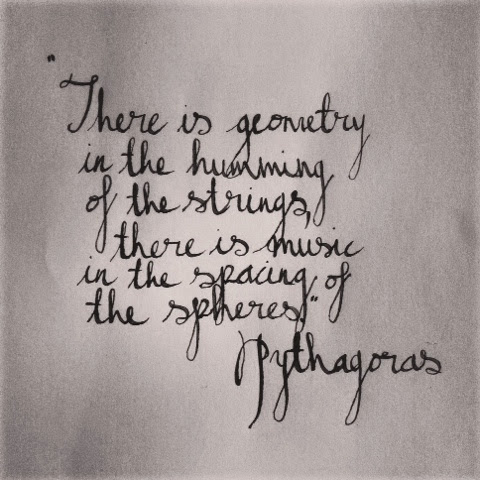 "There is geometry
in the humming
of the strings,
there is music
in the spacing of
the spheres."
Pythagoras